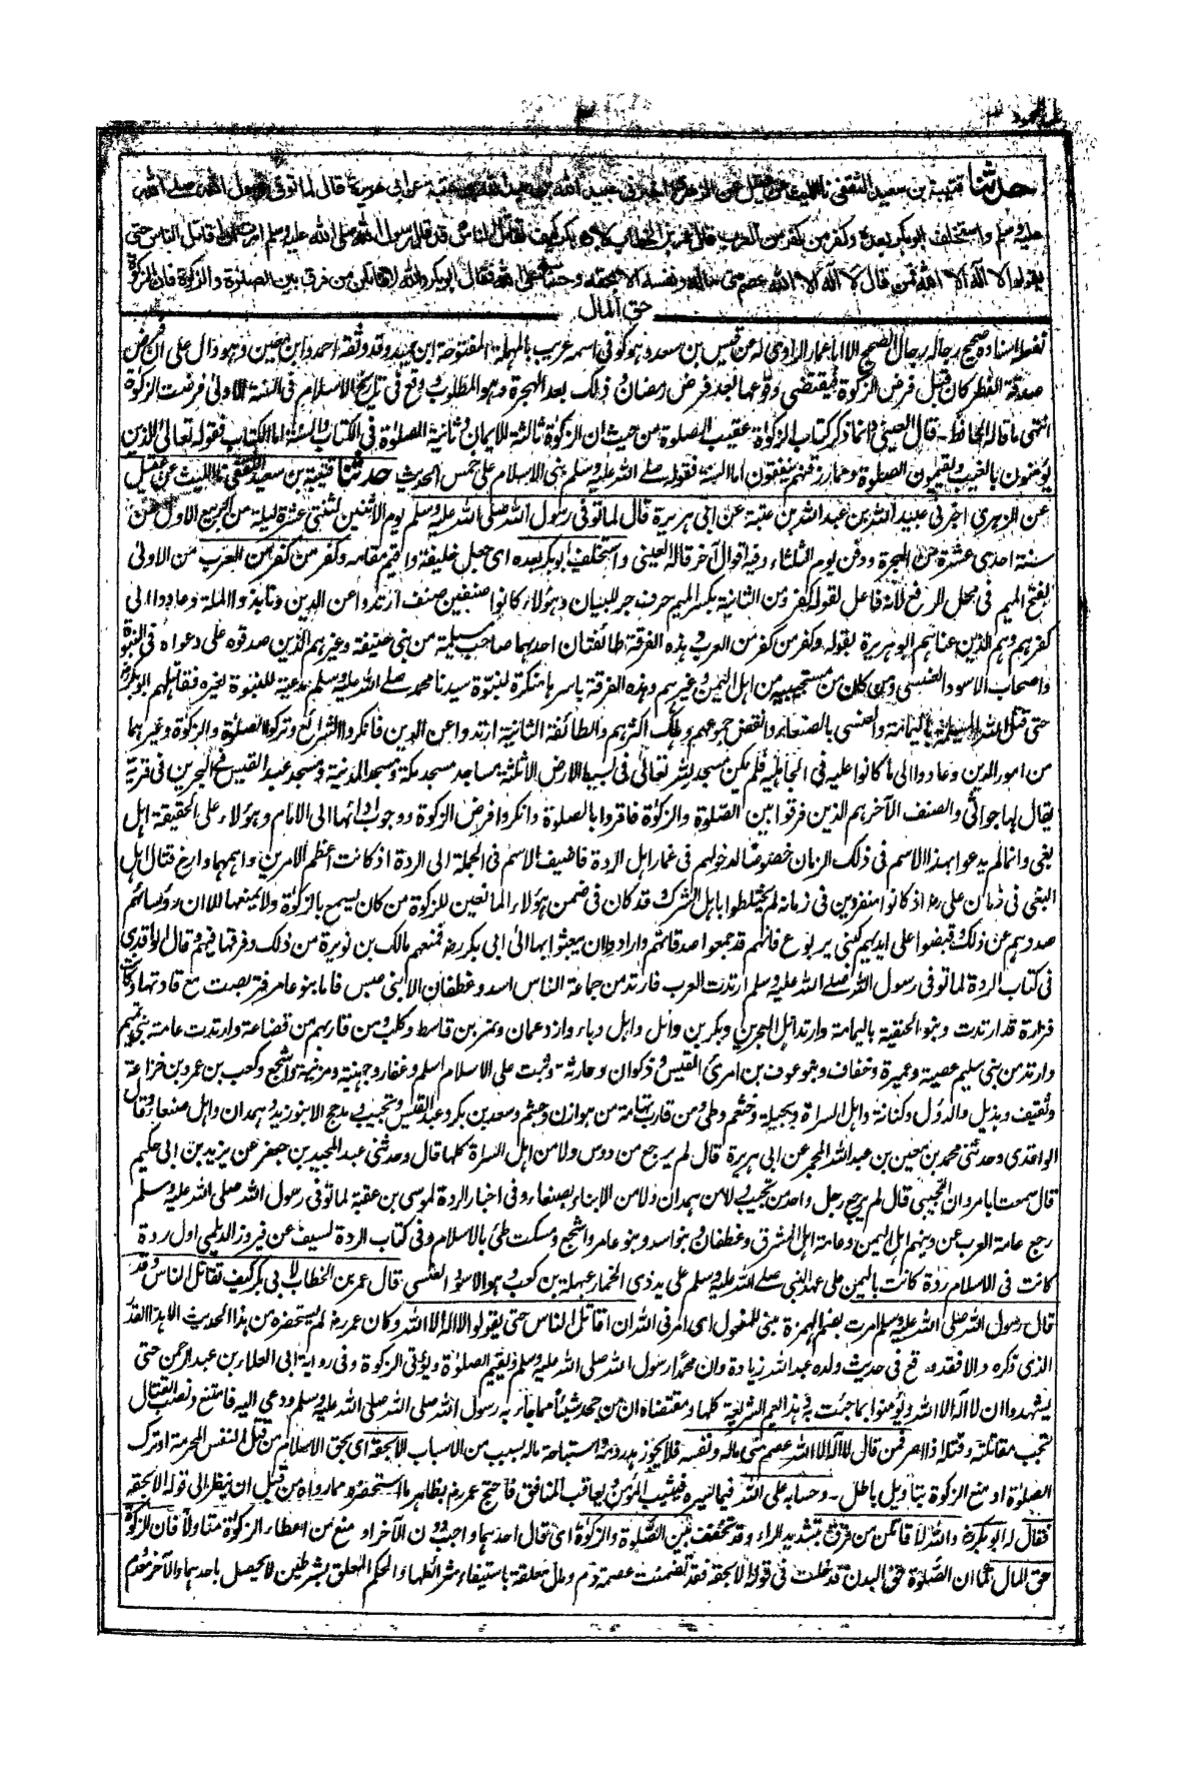 ٣
حدثنا قتيبة بن سعيد الثقفي نا الليث عن عقيل عن الزهري اخبرني عبيد الله بن عبد الله بن عتبة عن ابي هريرة قال لما توفي رسول الله صلى الله
عليه وسلم واستخلف ابو بكر بعده وكفر من كفر من العرب قال عمر بن الخطاب لابي بكر كيف تقاتل الناس وقد قال رسول الله صلى الله عليه وسلم امرت ان اقاتل الناس حتى
يقولوا لا اله الا الله فمن قال لا اله الا الله عصم مني ماله ونفسه الا بحقه وحسابه على الله فقال ابو بكر والله لاقاتلن من فرق بين الصلوة والزكوة فان الزكوة
حق المال
نفط اسناده صحيح رجاله رجال الصحيح الا ابا عمار الراوي له عن قيس بن سعد وهو كوفي اسمه عريب بالمهملة المفتوحة ابن حميد وقد وثقه احمد وابن معين وهو دال على ان فرض
صدقة الفطر كان قبل فرض الزكوة فيقتضي وقوعها بعد فرض رمضان وذلك بعد الهجرة وهو المطلوب ووقع في تاريخ الاسلام في السنة الاولى فرضت الزكوة
انتهى ما قاله الحافظ - قال العيني وانما ذكر كتاب الزكوة عقيب الصلوة من حيث ان الزكوة ثالثة للايمان وثانية الصلوة في الكتاب والسنة اما الكتاب فقوله تعالى الذين
يؤمنون بالغيب ويقيمون الصلوة ومما رزقنهم ينفقون اما السنة فقوله صلى الله عليه وسلم بني الاسلام على خمس الحديث حدثنا قتيبة بن سعيد الثقفي نا الليث عن عقيل
عن الزهري اخبرني عبيد الله بن عبد الله بن عتبة عن ابي هريرة قال لما توفي رسول الله صلى الله عليه وسلم يوم الاثنين لثنتي عشرة ليلة من الربيع الاول من
سنة احدى عشرة من الهجرة ودفن يوم الثلثاء وفيه اقوال آخر قاله العيني واستخلف ابو بكر بعده اي جعل خليفة واقيم مقامه وكفر من كفر من العرب من الاولى
بفتح الميم في محل الرفع لانه فاعل لقوله كفر ومن الثانية بكسر الميم حرف جر للبيان وهؤلاء كانوا صنفين صنف ارتدوا عن الدين ونابذوا الملة وعادوا الى
كفرهم وهم الذين عناهم ابو هريرة بقوله وكفر من كفر من العرب وهذه الفرقة طائفتان احدهما صاحب مسيلمة من بني حنيفة وغيرهم الذين صدقوه على دعواه في النبوة
واصحاب الاسود العنسي ومن كان من مستجيبيه من اهل اليمن وغيرهم وهذه الفرقة باسرها منكرة لنبوة سيدنا محمد صلى الله عليه وسلم مدعية للنبوة لغيره فقاتلهم ابو بكر
حتى قتل الله المسيلمة باليمامة والعنسي بالصنعاء وانفض جموعهم وهلك اكثرهم والطائفة الثانية ارتدوا عن الدين فانكروا الشرائع وتركوا الصلوة والزكوة وغيرهما
من امور الدين وعادوا الى ما كانوا عليه في الجاهلية فلم يكن مسجد لله تعالى في بسيط الارض الا ثلثة مساجد مسجد مكة ومسجد المدينة ومسجد عبد القيس في البحرين في قرية
يقال لها جواثى والصنف الآخر هم الذين فرقوا بين الصلوة والزكوة فاقروا بالصلوة وانكروا فرض الزكوة ووجوب ادائها الى الامام وهؤلاء على الحقيقة اهل
بغي وانما لم يدعوا بهذا الاسم في ذلك الزمان خصوصا لدخولهم في غمار اهل الردة فاضيف الاسم في الجملة الى الردة اذ كانت اعظم الامرين واهمهما وارخ قتال اهل
البغي في زمان علي رضه اذ كانوا منفردين في زمانه لم يختلطوا باهل الشرك وقد كان في ضمن هؤلاء المانعين للزكوة من كان يسمح بالزكوة ولا يمنعها الا ان رؤسائهم
صدوهم عن ذلك وقبضوا على ايديهم كبني يربوع فانهم قد جمعوا صدقاتهم وارادوا ان يبعثوا بها الى ابي بكر رضه فمنعهم مالك بن نويرة من ذلك وفرقها فيهم قال الواقدي
في كتاب الردة لما توفي رسول الله صلى الله عليه وسلم ارتدت العرب فارتد من جماعة الناس اسد وغطفان الا بني عبس فاما بنو عامر فتربصت مع قادتها وكانت
فزارة قد ارتدت وبنو الحنفية باليمامة وارتد اهل البحرين وبكر بن وائل واهل دباء وازد عمان ونمر بن قاسط وكلب ومن قاربهم من قضاعة وارتدت عامة بني تميم
وارتد من بني سليم عصية وعميرة وخفاف وبنو عوف بن امرئ القيس وذكوان وحارثة وثبت على الاسلام اسلم وغفار وجهينة ومزينة واشجع وكعب بن عمرو بن خزاعة
وثقيف وهذيل والدؤل وكنانة واهل السراة وبجيلة وخثعم وطي ومن قارب تهامة من هوازن وجشم وسعد بن بكر وعبد القيس وتجيب ومذحج الا بنو زبيد وهمدان واهل صنعاء وقال
الواقدي وحدثني محمد بن معين بن عبد الله المجمر عن ابي هريرة قال لم يرجع من دوس ولا من اهل السراة كلها قال وحدثني عبد المجيد بن جعفر عن يزيد بن ابي حكيم
قال سمعت ابا مروان التجيبي قال لم يرجع رجل واحد من تجيب ولا من همدان ولا من الابناء بصنعاء وفي اخبار الردة لموسى بن عقبة لما توفي رسول الله صلى الله عليه وسلم
رجع عامة العرب عن دينهم اهل اليمن وعامة اهل المشرق وغطفان وبنو اسد وبنو عامر واشجع ومسكت طئ بالاسلام وفي كتاب الردة لسيف عن فيروز الديلمي اول ردة
كانت في الاسلام ردة كانت باليمن على عهد النبي صلى الله عليه وسلم على يد ذي الخمار عبهلة بن كعب وهو الاسود العنسي قال عمر بن الخطاب لابي بكر كيف تقاتل الناس وقد
قال رسول الله صلى الله عليه وسلم امرت بضم الهمزة مبني للمفعول اي امرني الله ان اقاتل الناس حتى يقولوا لا اله الا الله وكان عمر رضه لم يستحضره من هذا الحديث الا هذا القدر
الذي ذكره والا فقد وقع في حديث ولده عبد الله زيادة وان محمدا رسول الله صلى الله عليه وسلم ويقيم الصلوة ويؤتي الزكوة وفي رواية ابي العلاء بن عبد الرحمن حتى
يشهدوا ان لا اله الا الله ويؤمنوا بما جئت به وهذا يعم الشريعة كلها ومقتضاه ان من جحد شيئا مما جاء به رسول الله صلى الله عليه وسلم ودعي اليه فامتنع ونصب القتال
تجب مقاتلته وقتله اذا اصر فمن قال لا اله الا الله عصم مني ماله ونفسه فلا يجوز هدر دمه واستباحة ماله بسبب من الاسباب الا بحقه اي بحق الاسلام من قتل النفس المحرمة او ترك
الصلوة او منع الزكوة بتاويل باطل - وحسابه على الله فيما يسره فيثيب المؤمن ويعاقب المنافق فاحتج عمر رضه بظاهر ما استحضره مما رواه من قبل ان ينظر الى قوله الا بحقه
فقال ابو بكر رضه والله لاقاتلن من فرق بتشديد الراء وقد تخفف بين الصلوة والزكوة اي قال احدهما واجب دون الآخر او منع من اعطاء الزكوة متاولا فان الزكوة
حق المال كما ان الصلوة حق البدن قد دخلت في قوله الا بحقه فقد تضمنت عصمة دم ومال معلقة باستيفاء شرائطها والحكم المعلق بشرطين لا يحصل باحدهما والآخر معدم